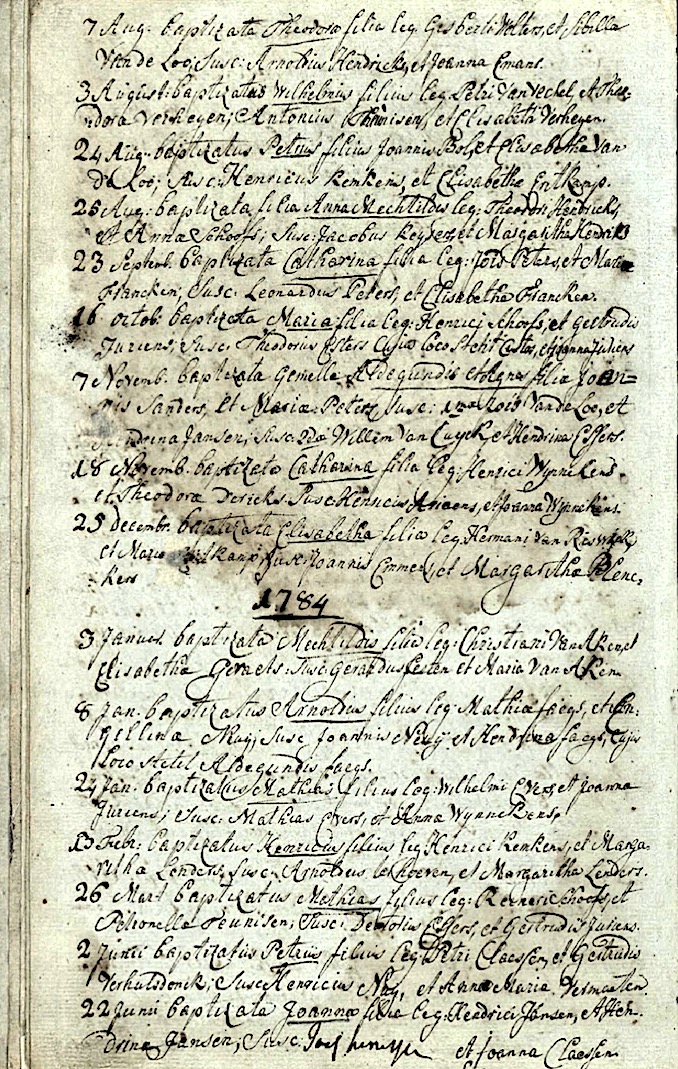 7 Aug: baptizata Theodora filia leg. Gisberti Wolters, et Sibilla
Van de Loo, Susc: Arnoldus Hendricks, et Joanna Emans.
3 August: baptizatus Wilhelmus filius leg. Petri Van Vechel et Theo-
dora Verheyen; Antonius Theunisen, et Elisabeth Verheyen.
24 Aug: baptizatus Petrus filius Joannis Bol, et Elisabetha Van
de Loo; Susc: Henricus Kenkens, et Elisabetha Entkamp.
25 Aug: baptizata filia Anna Mechtildis leg: Theodori Hendricks,
et Anna Schoofs; Susc: Jacobus Keysers, et Margaritha Hendriks
23 Septemb. baptizata Catharina filia leg: Jois Peters, et Maria
Francken; Susc: Leonardus Peters, et Elisabetha Francken.
16 octob: baptizata Maria filia leg: Henrici Schoofs, et Gertrudis
Juriens; Susc: Theodorus Esters Cujus loco stetit et Joanna Juriens
7 Novemb. baptizata Gemella Aldegundis et Agna filiæ Joan=
nis Sanders, et Mariæ Peters, Susc: 1mæ Jois Van de Loo, et
Hendrina Jansen; Susc: 2dæ Willem Van Cuyck, et Hendrina Effers.
18 Novemb. baptizata Catharina filia leg: Henrici Wynnekens
et Theodora Dericks Susc Henricus Ariaens, et Joanna Wynnekens.
25 decembr. baptizata Elisabetha filia leg. Hermani Van Rieswyck,
et Maria Susc: Joannis Emmers, et Margaritha Blenc-
kers
1784
3 Januar. baptizata Mechtildis filia leg: Christiani Van Aken, et
Elisabetha Geraets. Susc: Gerardus Lesten et Maria Van Aken.
8 Jan. baptizatus Arnoldus filius leg: Mathiæ faegs, et En-
gellina Nuy; Susc Joannis Nuy et Hendrina faegs, Cujus
loco stetit Aldegundis faegs.
24 Jan. baptizatus Mathias filius leg: Wilhelmi Evers, et Joanna
Juriens; Susc: Mathias Evers, et Anna Wynnekens.
13 Febr. baptizatus Henricus filius leg Henrici Kenkens, et Marga-
ritha Lenders, Susc. Arnoldus te Hoeven, et Margaritha Lenders.
26 Mart baptizatus Mathias filius leg: Reineri Schoofs, et
Petronella Teunisen; Susc: Effers, et Gertrudis Juriens.
2 Junii baptizatus Petrus filius leg Petri Claessen, et Gertrudis
Verhulsdonck; Susc Henricus Nuy, et Anna Maria Vermaeten
22 Junii baptizata Joanna filia leg. Hendrici Jansen, et Hen-
drina Jansen; Susc: et Joanna Claessen